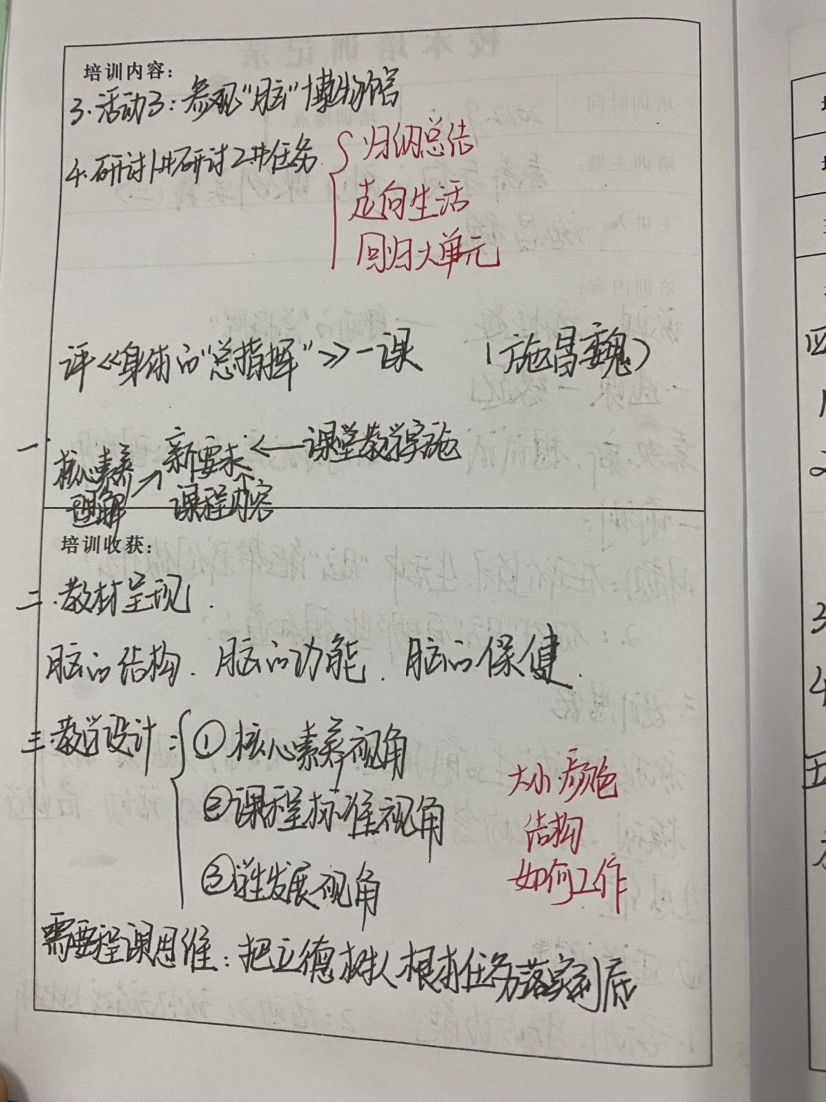 培训内容：
3.活动3：参观“脑”博物馆
4.研讨1+研讨2+任务 { 归纳总结
走向生活
回归大单元
评《身体的“总指挥”》一课 （施昌魏）
一. 核心素养理解 → 新要求 ← 课堂教学实施
课程内容
培训收获：
二.教材呈现.
脑的结构.脑的功能.脑的保健.
三.教学设计：{ ①核心素养视角
②课程标准视角
③学生发展视角
大小.颜色
结构
如何工作
需要程课思维：把立德树人根本任务落实到底